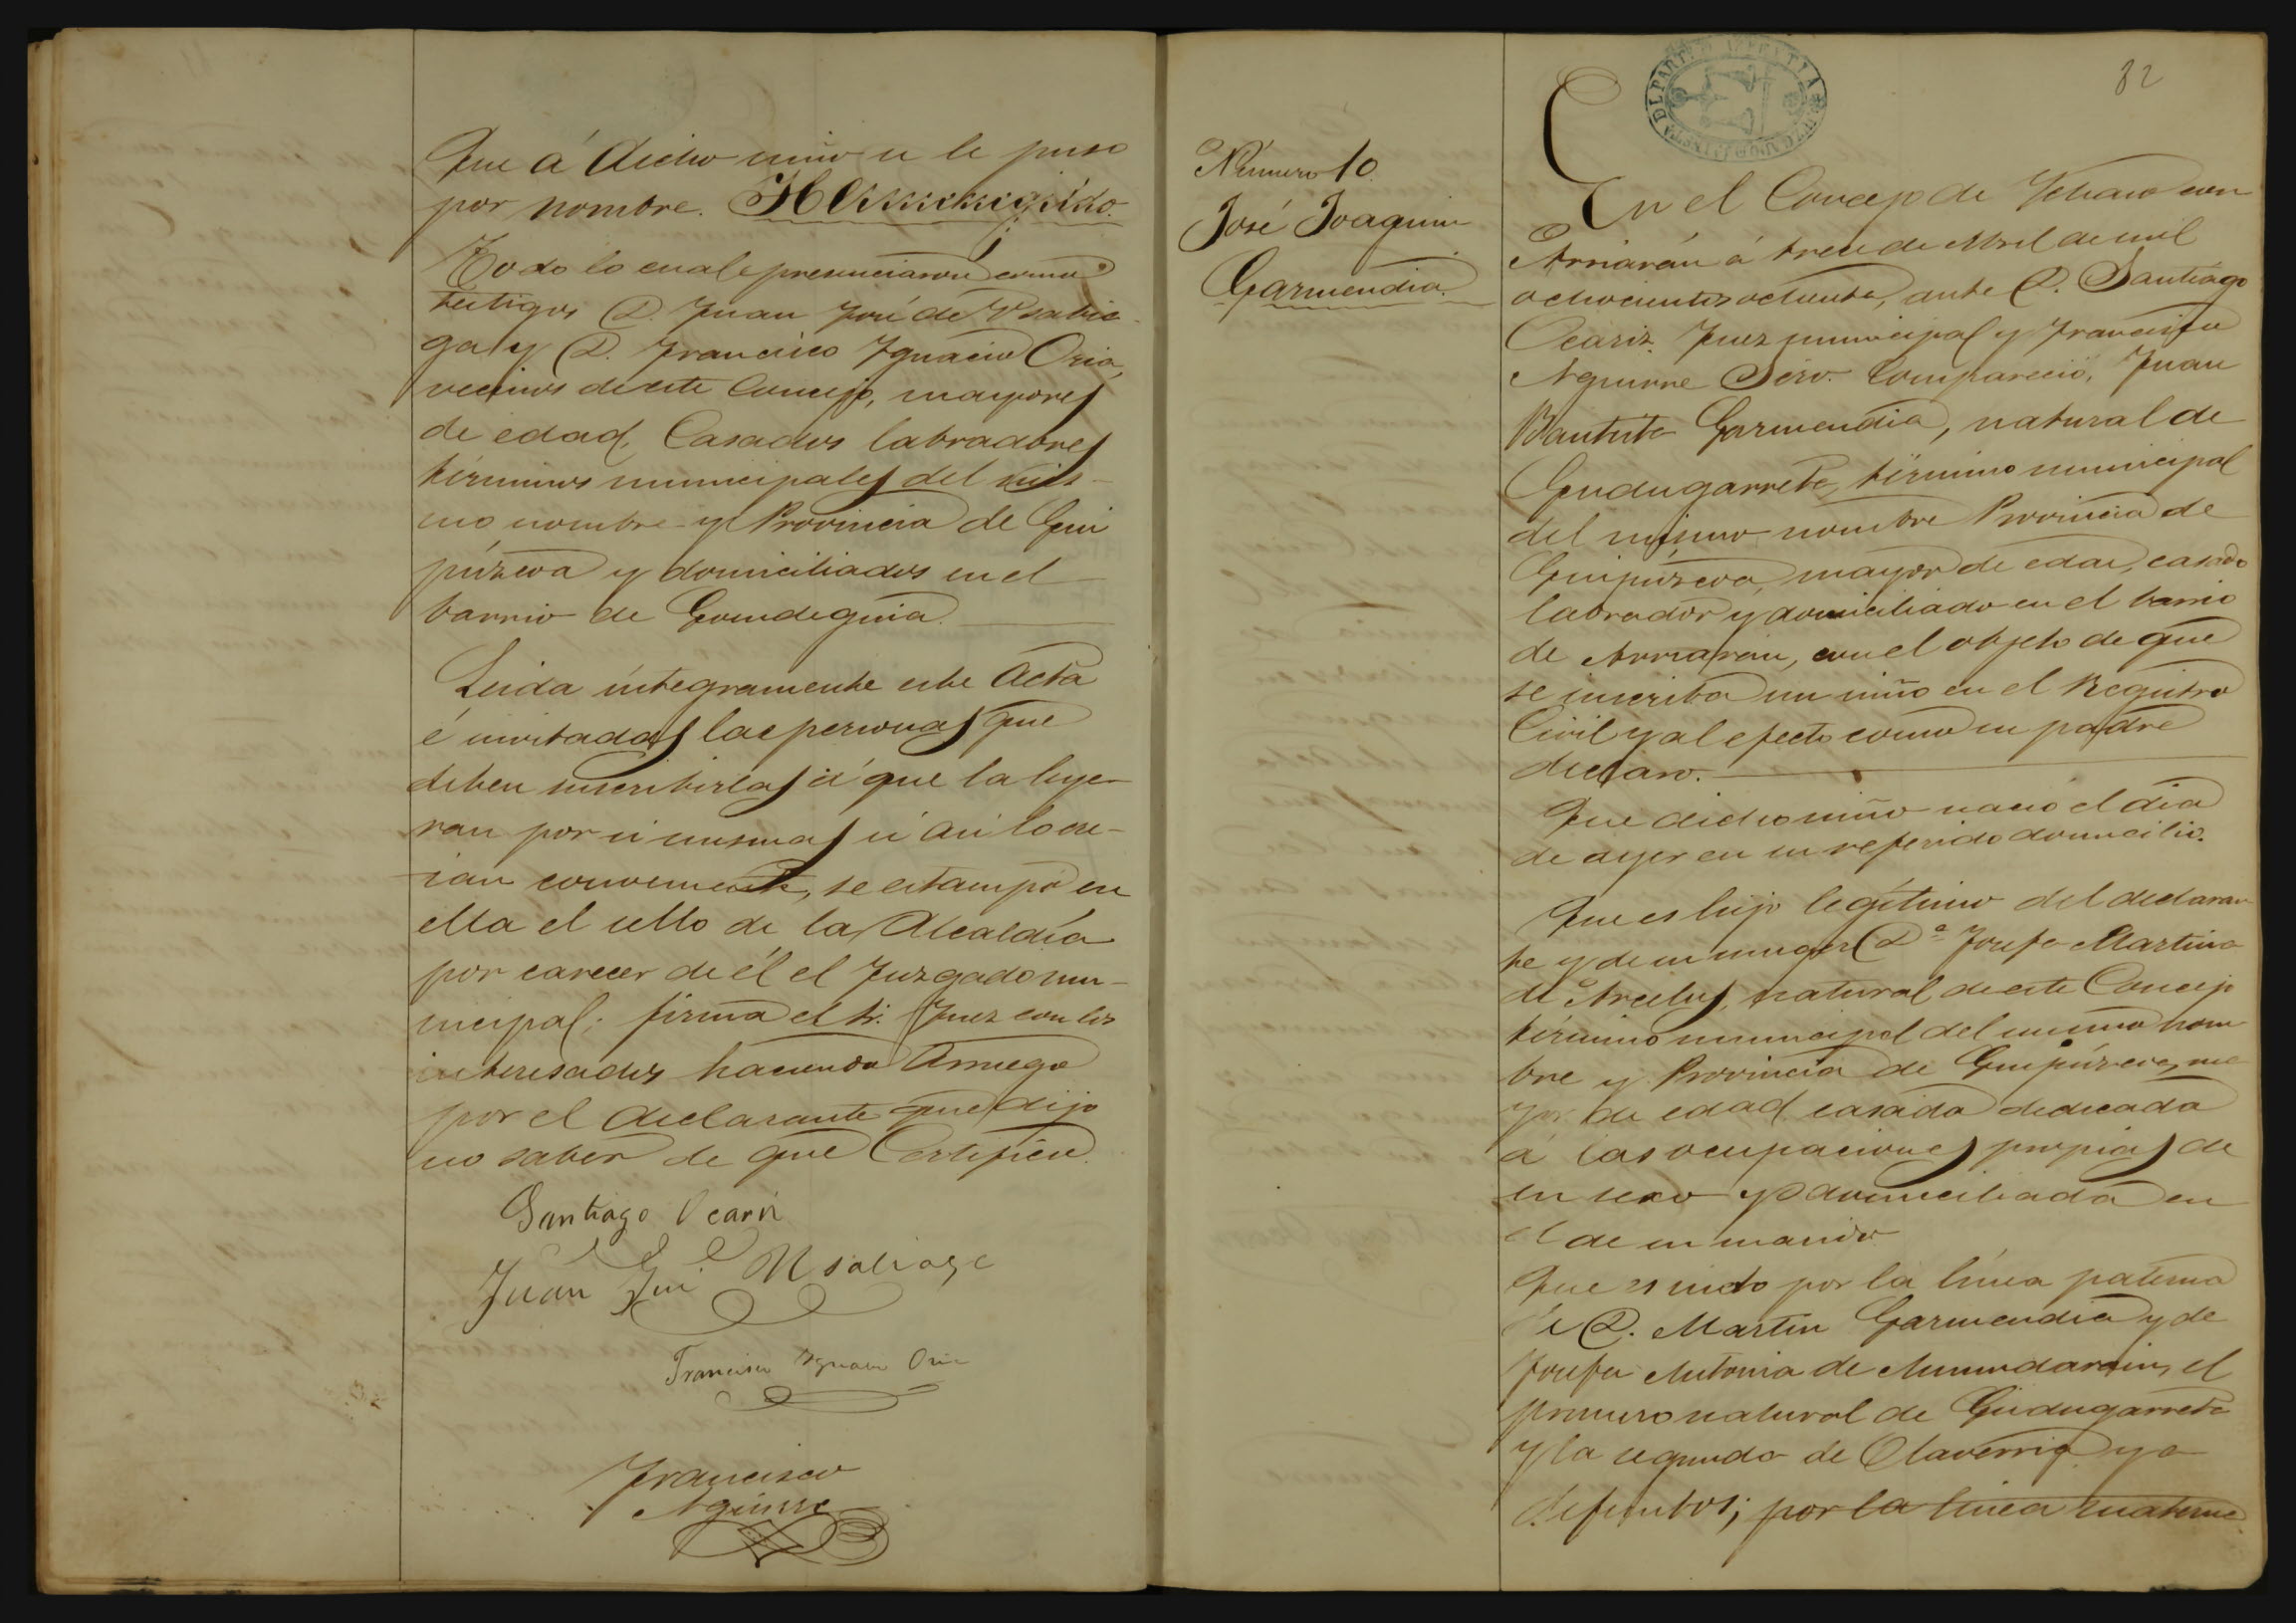 Que á dicho niño se le puso
por nombre. Hermenegildo.
Todo lo cual presenciaron como
testigos D. Juan José de Usabia-
ga y D. Francisco Ignacio Oria,
vecinos de este Concejo, mayores
de edad, Casados labradores
términos municipales del mis-
mo nombre y Provincia de Gui
púzcoa y domiciliados en el
barrio de Goindeguia.
Leida íntegramente este Acta
é invitadas las personas que
deben suscribirlas á que la leye-
ran por si mismas si asi lo cre-
ian conveniente, se estampó en
ella el sello de la Alcaldía
por carecer de él el Juzgado mu-
nicipal; firma el Sr. Juez con los
interesados haciendo Arruego
por el declarante que dijo
no saber de que Certifico.
Santiago Ocariz
Juan José Usabiaga
Francisco Ygnacio Oria
Francisco
Aguirre
82
Número 10.
José Joaquin
Garmendia.
En el Concejo de con
Arriarán á trece de Abril de mil
ochocientos ochenta, ante D. Santiago
Ocariz Juez municipal y Francisco
Aguirre Srio. Compareció, Juan
Bautista Garmendia, natural de
Gudugarreta, término municipal
del mismo nombre Provincia de
Guipúzcoa, mayor de edad, casado
labrador y domiciliado en el barrio
de Arriaran, con el objeto de que
se inscriba un niño en el Registro
Civil y al efecto como su padre
declaro.
Que dicho niño nació el dia
de ayer en su referido domicilio.
Que es hijo legítimo del declaran
te y de su muger Dª Josefa Martina
de Arcelus, natural de este Concejo
término municipal del mismo nom
bre y Provincia de Guipúzcoa, ma
yor de edad casada dedicada
á las ocupaciones propias de
su sexo y domiciliada en
el de su marido
Que es nieto por la línea paterna
de D. Martin Garmendia y de
Josefa Antonia de Amundarain, el
primero natural de Gudugarreta
y la segunda de Olaverria ya
difuntos; por la linea materna